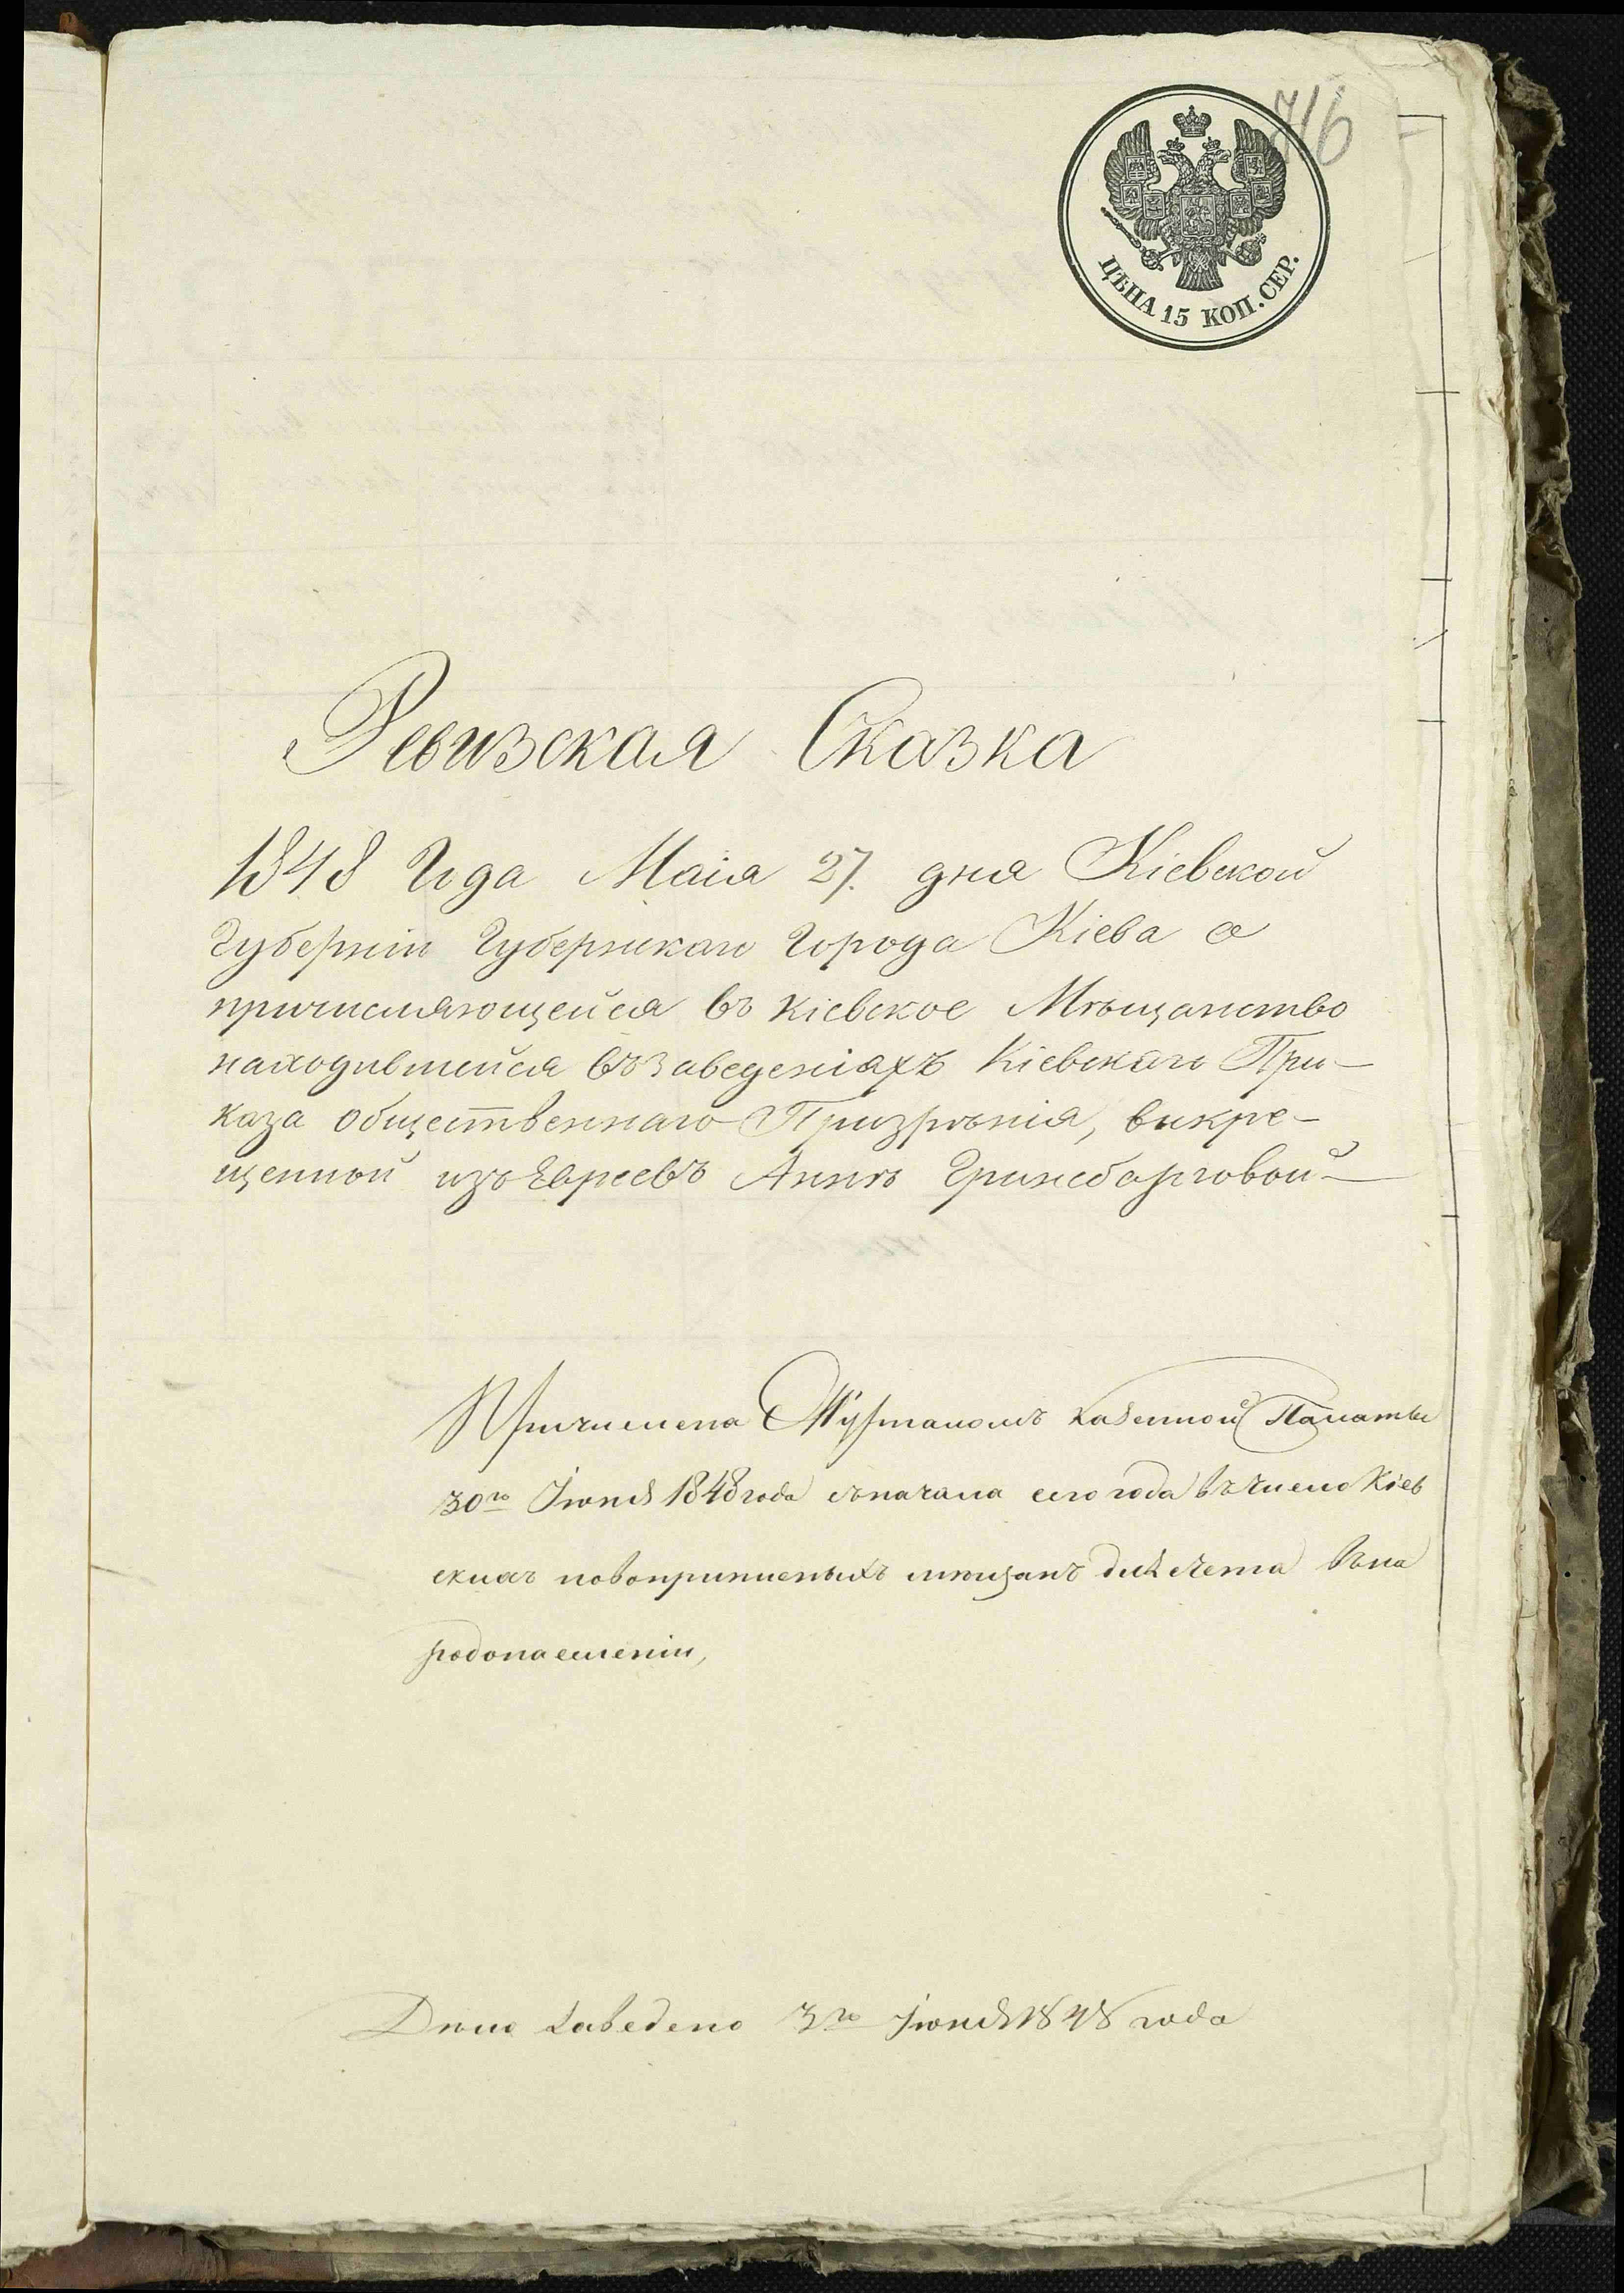 716
ЦѢНА 15 КОП. СЕР.
Ревизская Сказка
1848 Года Маія 27. дня Кіевской
Губерніи Губернскаго Города Кіева о
причисляющейся въ Кіевское Мѣщанство
находившейся въ Заведеніяхъ Кіевскаго При-
каза Общественнаго Призрѣнія, выкре-
щенной изъ Евреевъ Аннѣ Гринсбарговой
Причислена Журналомъ Казенной Палаты
30го Іюня 1848 года съ начала сего года въ число Кіев
скихъ новоприписныхъ мѣщанъ для счета въ на
родонаселеніи,
Дѣло заведено 3го Іюня 1848 года